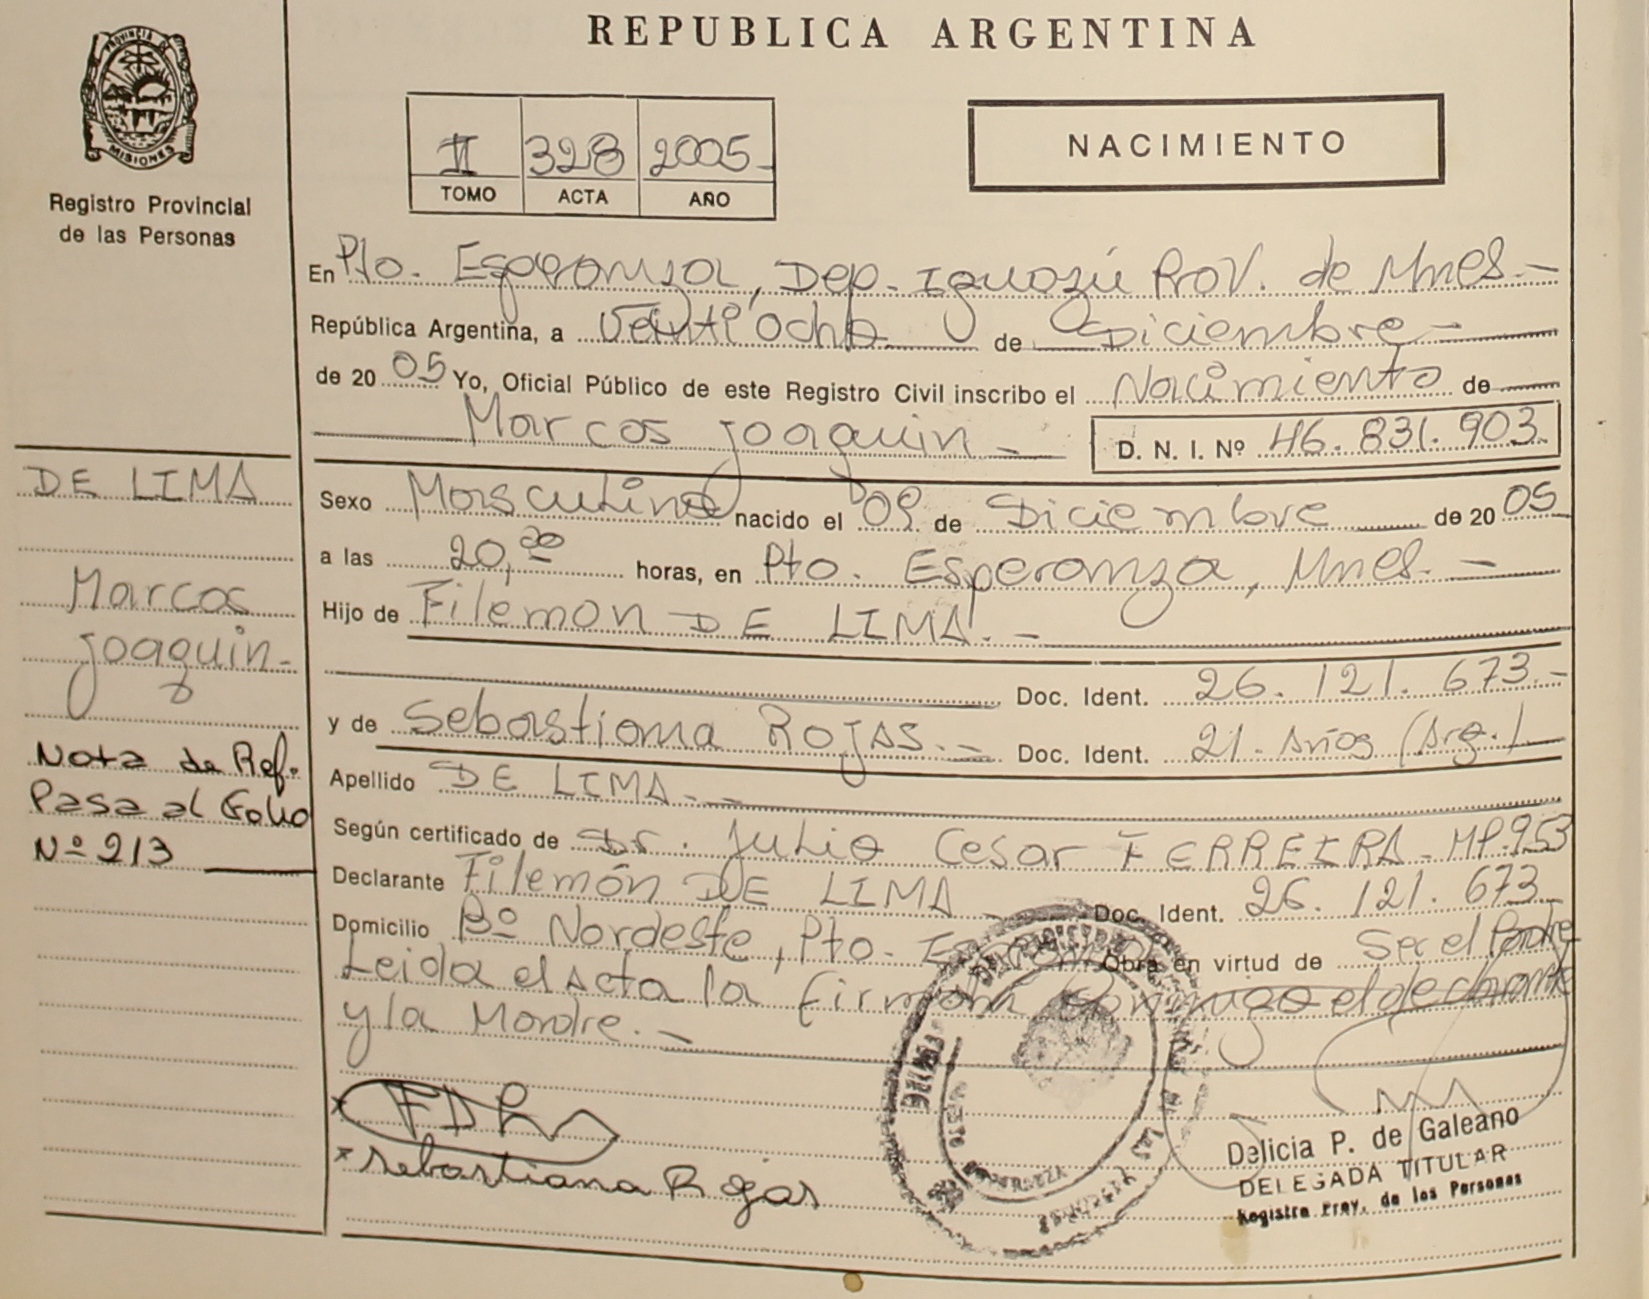 REPUBLICA ARGENTINA
PROVINCIA DE
MISIONES
Registro Provincial
de las Personas
II 328 2005-
TOMO ACTA AÑO
NACIMIENTO
En Pto. Esperanza, Dep. Iguazú Prov. de Mnes.-
República Argentina, a Veintiocho de Diciembre-
de 20 05 Yo, Oficial Público de este Registro Civil inscribo el Nacimiento de
Marcos Joaquin - D. N. I. Nº 46.831.903
DE LIMA
Marcos
Joaquin-
Nota de Ref.
Pasa al Folio
Nº 213
Sexo Masculino nacido el 09 de Diciembre de 20 05
a las 20,20 horas, en Pto. Esperanza, Mnes.-
Hijo de Filemon DE LIMA.-
Doc. Ident. 26.121.673.-
y de Sebastiana ROJAS.- Doc. Ident. 21. Años (Arg.)
Apellido DE LIMA.-
Según certificado de Dr. Julio Cesar FERREIRA-MP.953
Declarante Filemón DE LIMA Doc. Ident. 26.121.673
Domicilio Bº Nordeste, Pto. Obra en virtud de Ser el Padre
Leida el Acta la firman conmigo el declarante
y la Madre.-
FDL
x Sebastiana Rojas
Delicia P. de Galeano
DELEGADA TITULAR
Registro Prov. de las Personas